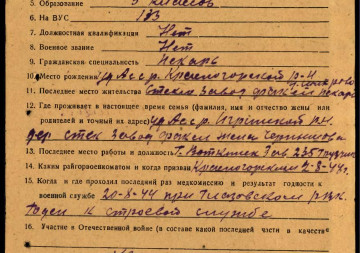 5. Образование 5 классов
6. На ВУС 133
7. Должностная квалификация Нет
8. Военное звание Нет
9. Гражданская специальность Пекарь
10. Место рождения Ур Асср. Красногорский р-н
11. Последнее место жительства Стекло завод
12. Где проживает в настоящее время семья (фамилия, имя и отчество жены или
родителей и точный их адрес) Ур Асср. Игринский р-н.
дер стек завод жена
13. Последнее место работы и должность Г. Воткинск Зав. 235
14. Каким райгорвоенкоматом и когда призван Красногорским 2-8-44г.
15. Когда и где проходил последний раз медкомиссию и результат годности к
военной службе 20-8-44 при Глазовском рвк.
Годен к строевой службе
16. Участие в Отечественной войне (в составе какой последней части в качестве